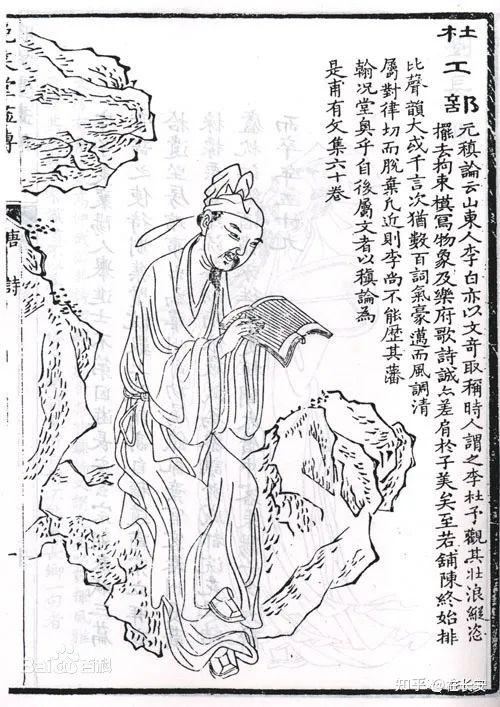 杜工部
元稹論云山東人李白亦以文奇取稱時人謂之李杜予觀其壯浪縱恣
擺去拘束模寫物象及樂府歌詩誠亦差肩於子美矣至若舖陳終始排
比聲韻大或千言次猶數百詞氣豪邁而風調清
屬對律切而脫棄凡近則李尚不能歷其藩
翰况堂奧乎自後屬文者以稹論為
是甫有文集六十卷
唐詩
一
Bai百科
知乎 @在长安